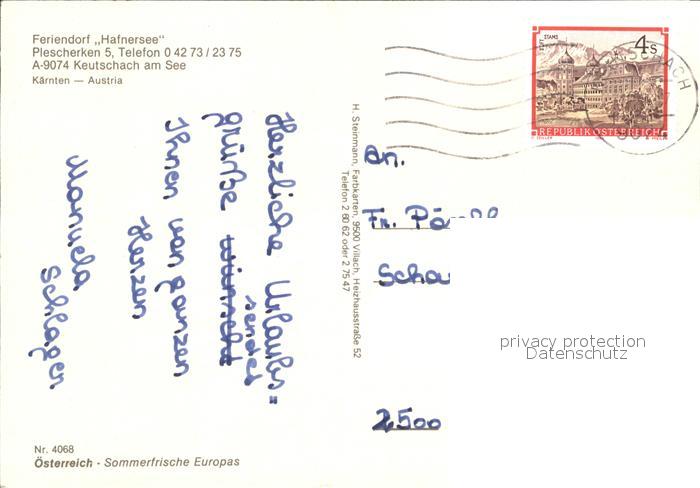 Feriendorf „Hafnersee"
Plescherken 5, Telefon 0 42 73 / 23 75
A-9074 Keutschach am See
Kärnten — Austria
Herzliche Urlaubs=
grüße wünscht
sendet
Ihnen von ganzen
Herzen
Manuela
Schlager
H. Steinmann, Farbkarten, 9500 Villach, Heizhausstraße 52
Telefon 2 60 62 oder 2 75 47
STIFT STAMS
4 S
REPUBLIK ÖSTERREICH
An.
Fr.
2500
privacy protection
Datenschutz
Nr. 4068
Österreich - Sommerfrische Europas